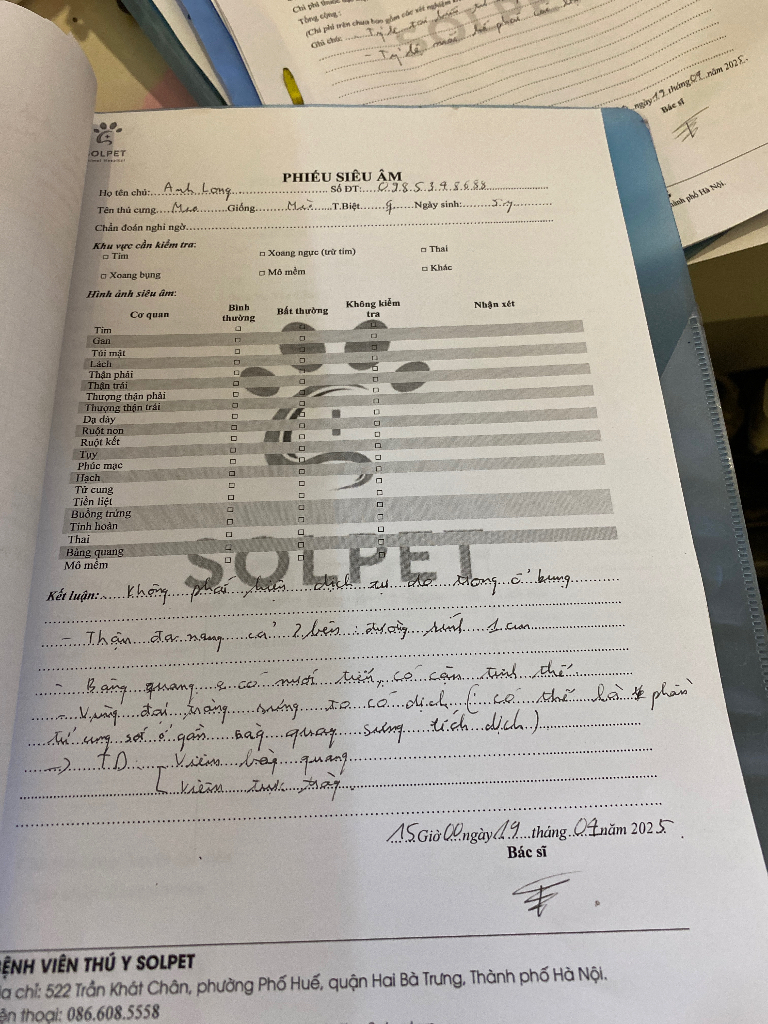 Chi phí thuốc
Tổng cộng :
(Chi phí trên chưa bao gồm các xét nghiệm
Ghi chú:
ngày 19 tháng 09 năm 2025
Bác sĩ
thành phố Hà Nội.
SOLPET
OLPET
PHIẾU SIÊU ÂM
Họ tên chủ: Anh Long Số ĐT: 0985398688
Tên thú cưng Mun Giống Mèo T.Biệt Ngày sinh:
Chẩn đoán nghi ngờ
Khu vực cần kiểm tra:
□ Tim □ Xoang ngực (trừ tim) □ Thai
□ Xoang bụng □ Mô mềm □ Khác
Hình ảnh siêu âm:
Cơ quan Bình thường Bất thường Không kiểm tra Nhận xét
Tim □ □ □
Gan □ □ □
Túi mật □ □ □
Lách □ □ □
Thận phải □ □ □
Thận trái □ □ □
Thượng thận phải □ □ □
Thượng thận trái □ □ □
Dạ dày □ □ □
Ruột non □ □ □
Ruột kết □ □ □
Tụy □ □ □
Phúc mạc □ □ □
Hạch □ □ □
Tử cung □ □ □
Tiền liệt □ □ □
Buồng trứng □ □ □
Tinh hoàn □ □ □
Thai □ □ □
Bàng quang □ □ □
Mô mềm □ □ □
SOLPET
Kết luận: Không phát hiện dịch tự do trong ổ bụng
- Thận đa nang cả 2 bên : đường kính 1 cm
- Bàng quang có nươi tiến, có cặn tinh thể
- Vùng đại tràng sưng to có dịch ( có thể là phần
tử cung sót ở gần bàg quang sưng tích dịch )
=> TD: Viêm bàg quang
Viêm trực tràg
15 Giờ 00 ngày 19 tháng 09 năm 2025
Bác sĩ
BỆNH VIỆN THÚ Y SOLPET
ịa chỉ: 522 Trần Khát Chân, phường Phố Huế, quận Hai Bà Trưng, Thành phố Hà Nội.
ện thoại: 086.608.5558